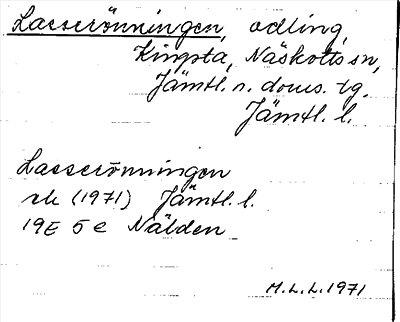 Lasserönningen, odling,
Kingsta, Näskotts sn,
Jämtl. n. doms. tg.
Jämtl. l.
Lasserönningen
rk (1971) Jämtl. l.
19E 5e Nälden
M.L.L. 1971